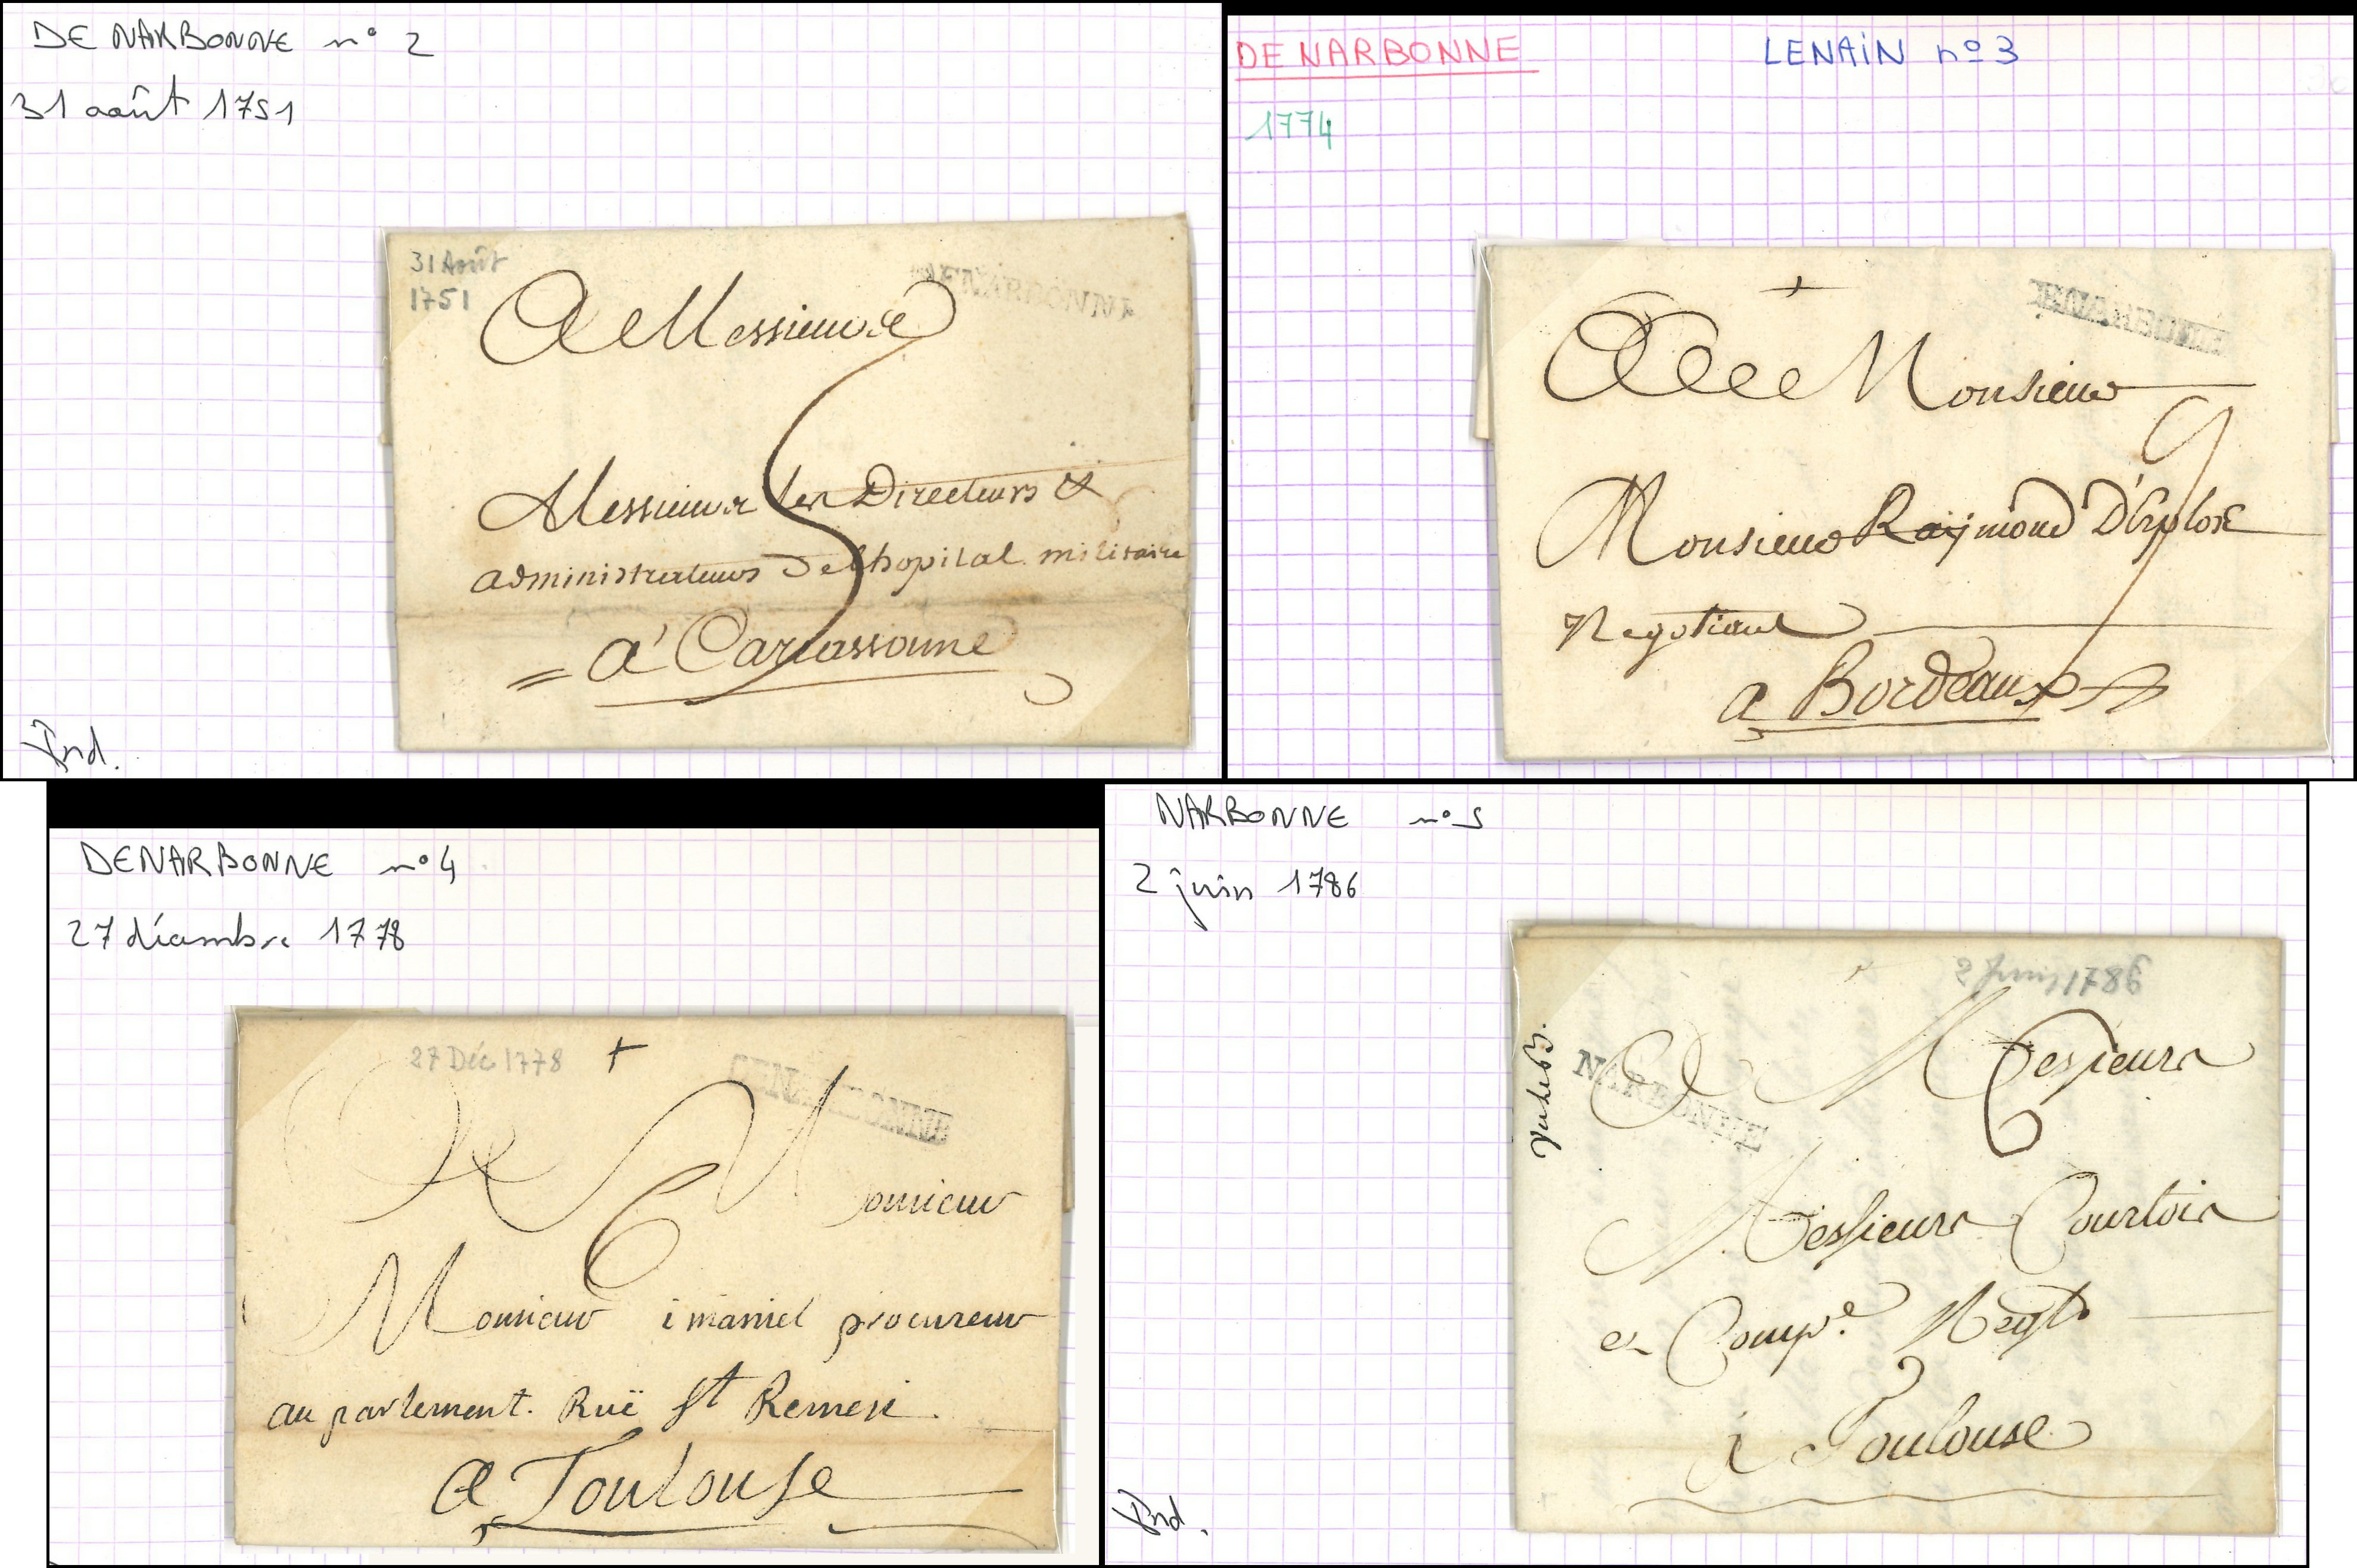 DE NARBONNE n° 2
31 août 1751
31 Août
1751
DENARBONNE
A Messieurs
5
Messieurs les Directeurs &
administrateurs de lhopital militaire
= a' Carcassonne
Ind.
DE NARBONNE LENAIN nº 3
1774
A Monsieur
9
Monsieur Raymond
Negotiant
a Bordeaux
DENARBONNE n° 4
27 décembre 1778
27 Déc 1778
DENARBONNE
A Monsieur
6
Monsieur procureur
au parlement. Ruë St Remesi.
A Toulouse
NARBONNE n° 5
2 juin 1786
2 Juin 1786
NARBONNE
A Messieurs
6
Messieurs Courtois
et Compe. Negts
à Toulouse
Ind.